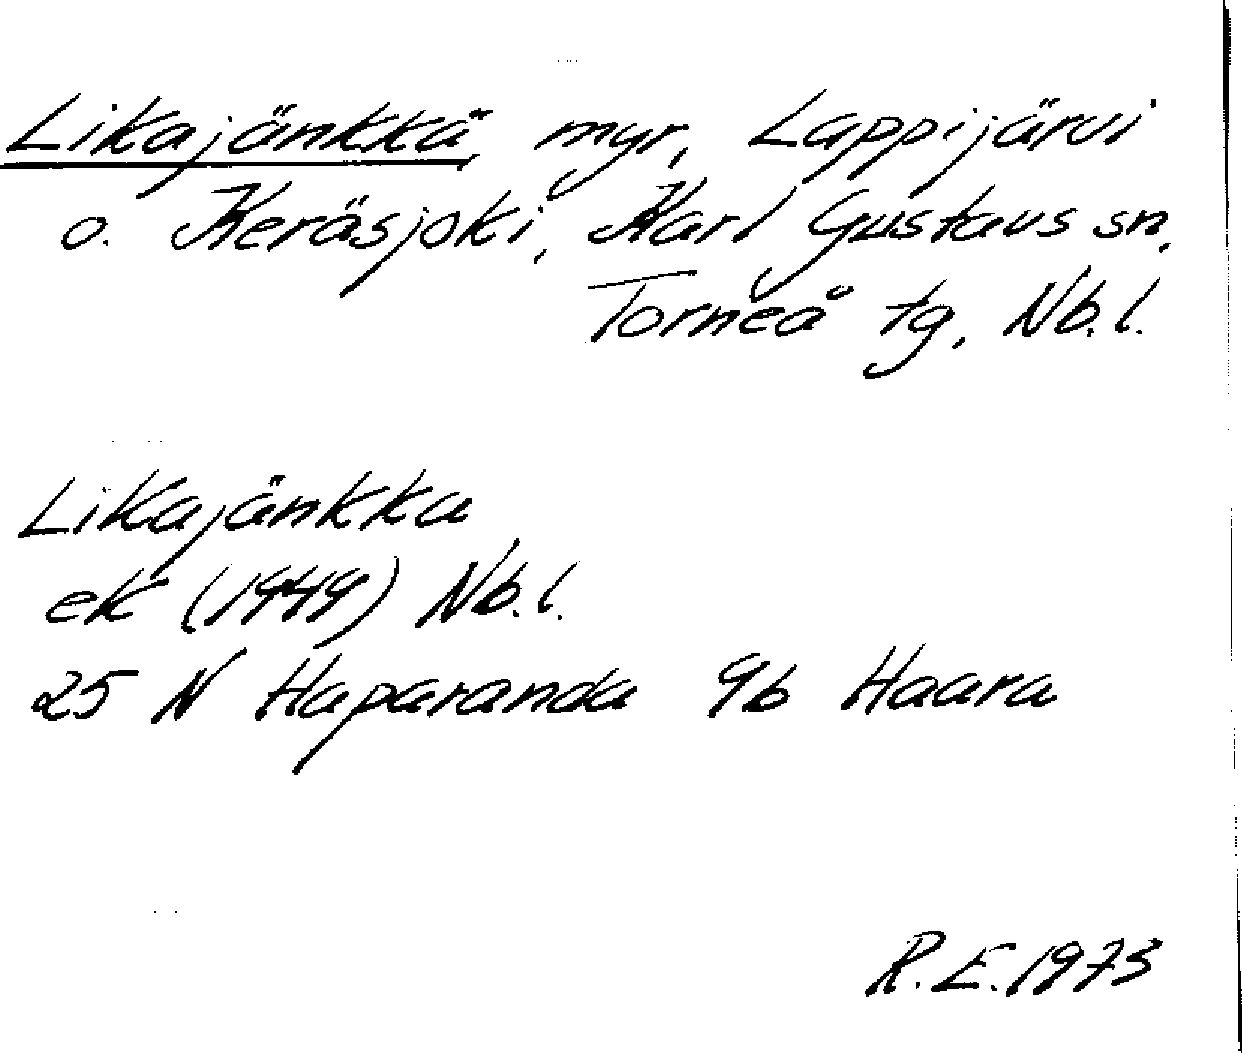 Likajänkkä, myr, Lappijärvi
o. Keräsjoki, Karl Gustavs sn,
Torneå tg, Nb.l.
Likajänkka
ek (1949) Nb.l.
25 N Haparanda 9b Haara
R.E. 1973